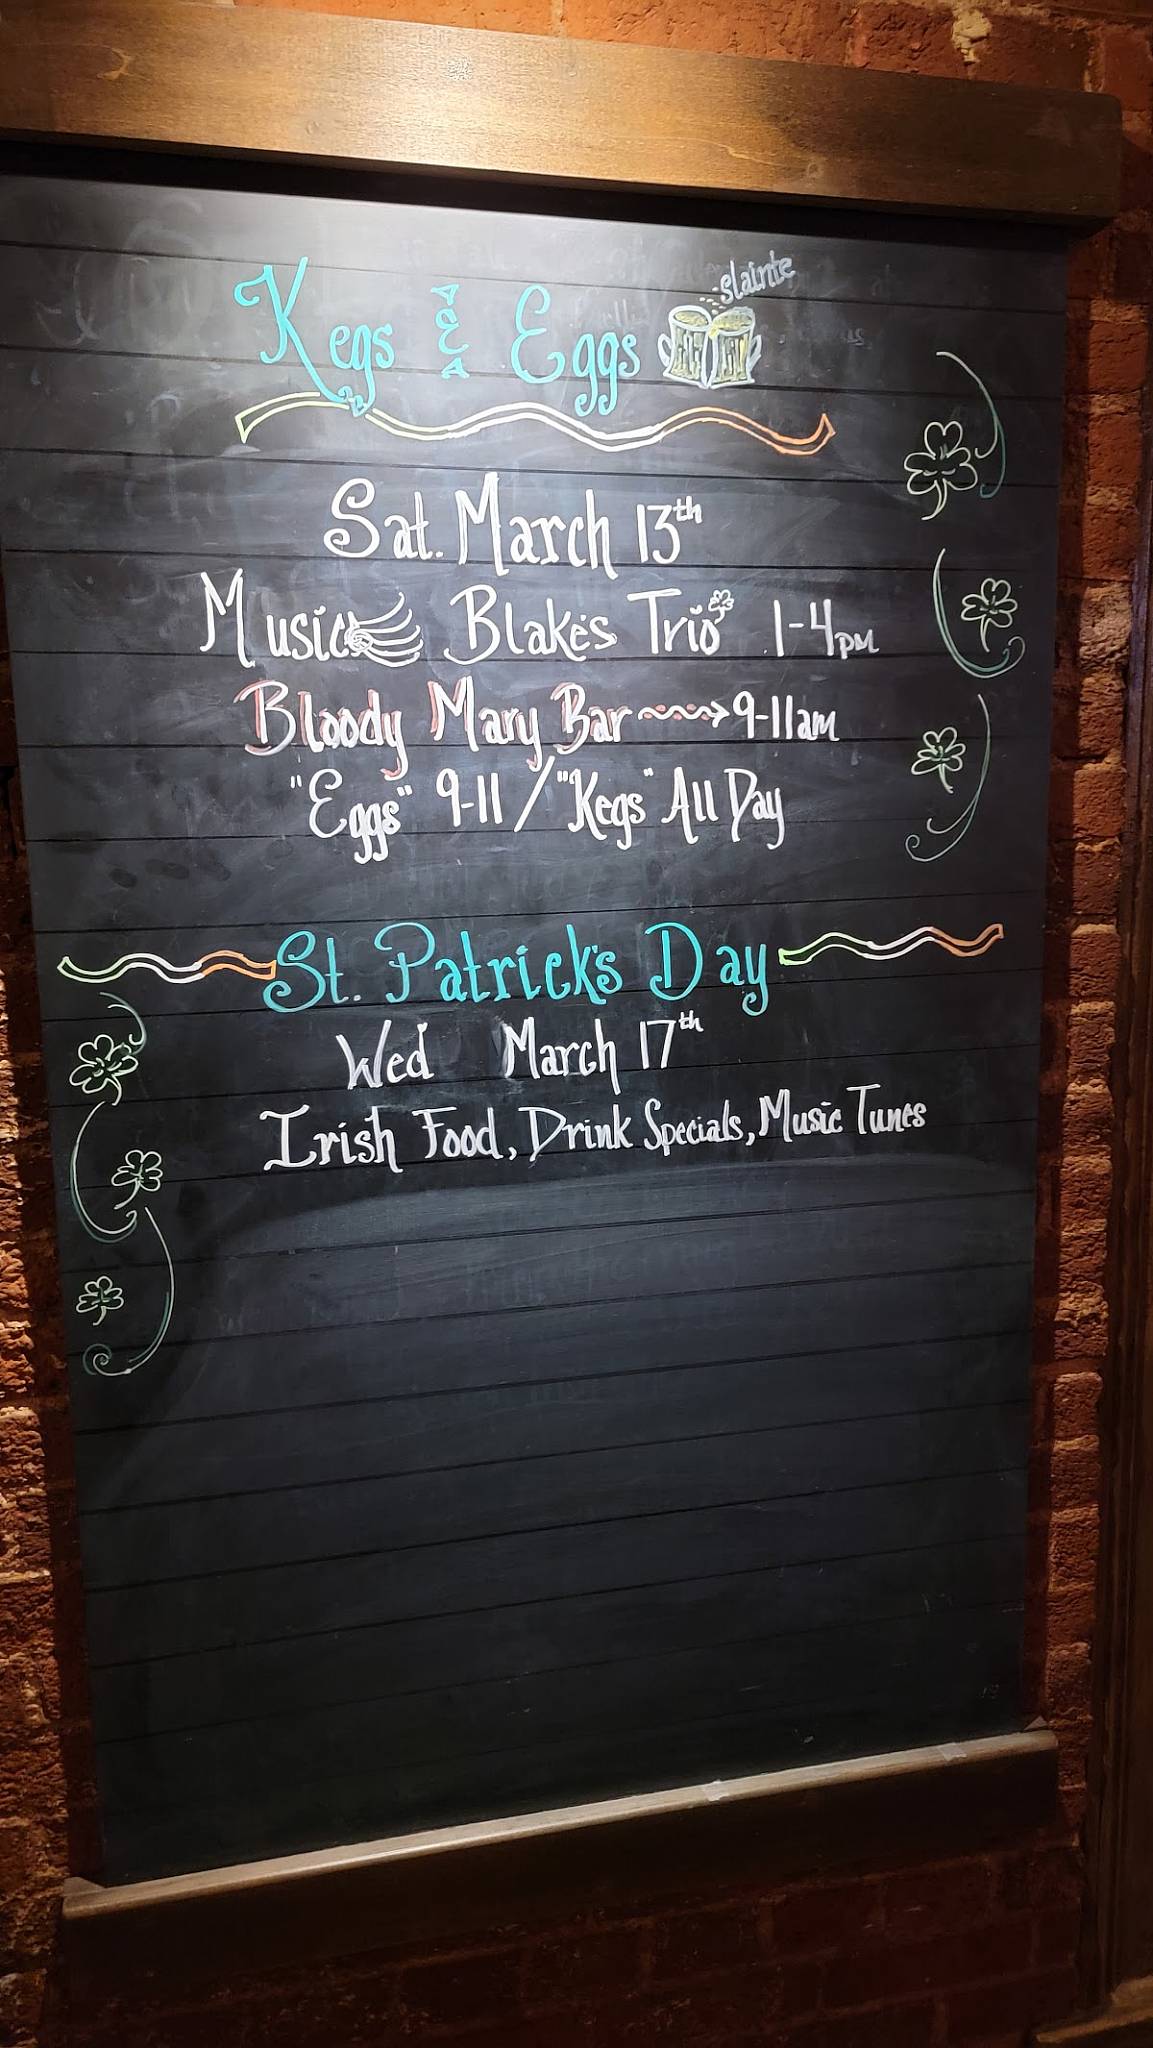 slainte
Kegs & Eggs
Sat. March 13th
Music Blake's Trio 1-4pm
Bloody Mary Bar 9-11am
"Eggs" 9-11 / "Kegs" All Day
St. Patrick's Day
Wed March 17th
Irish Food, Drink Specials, Music Tunes